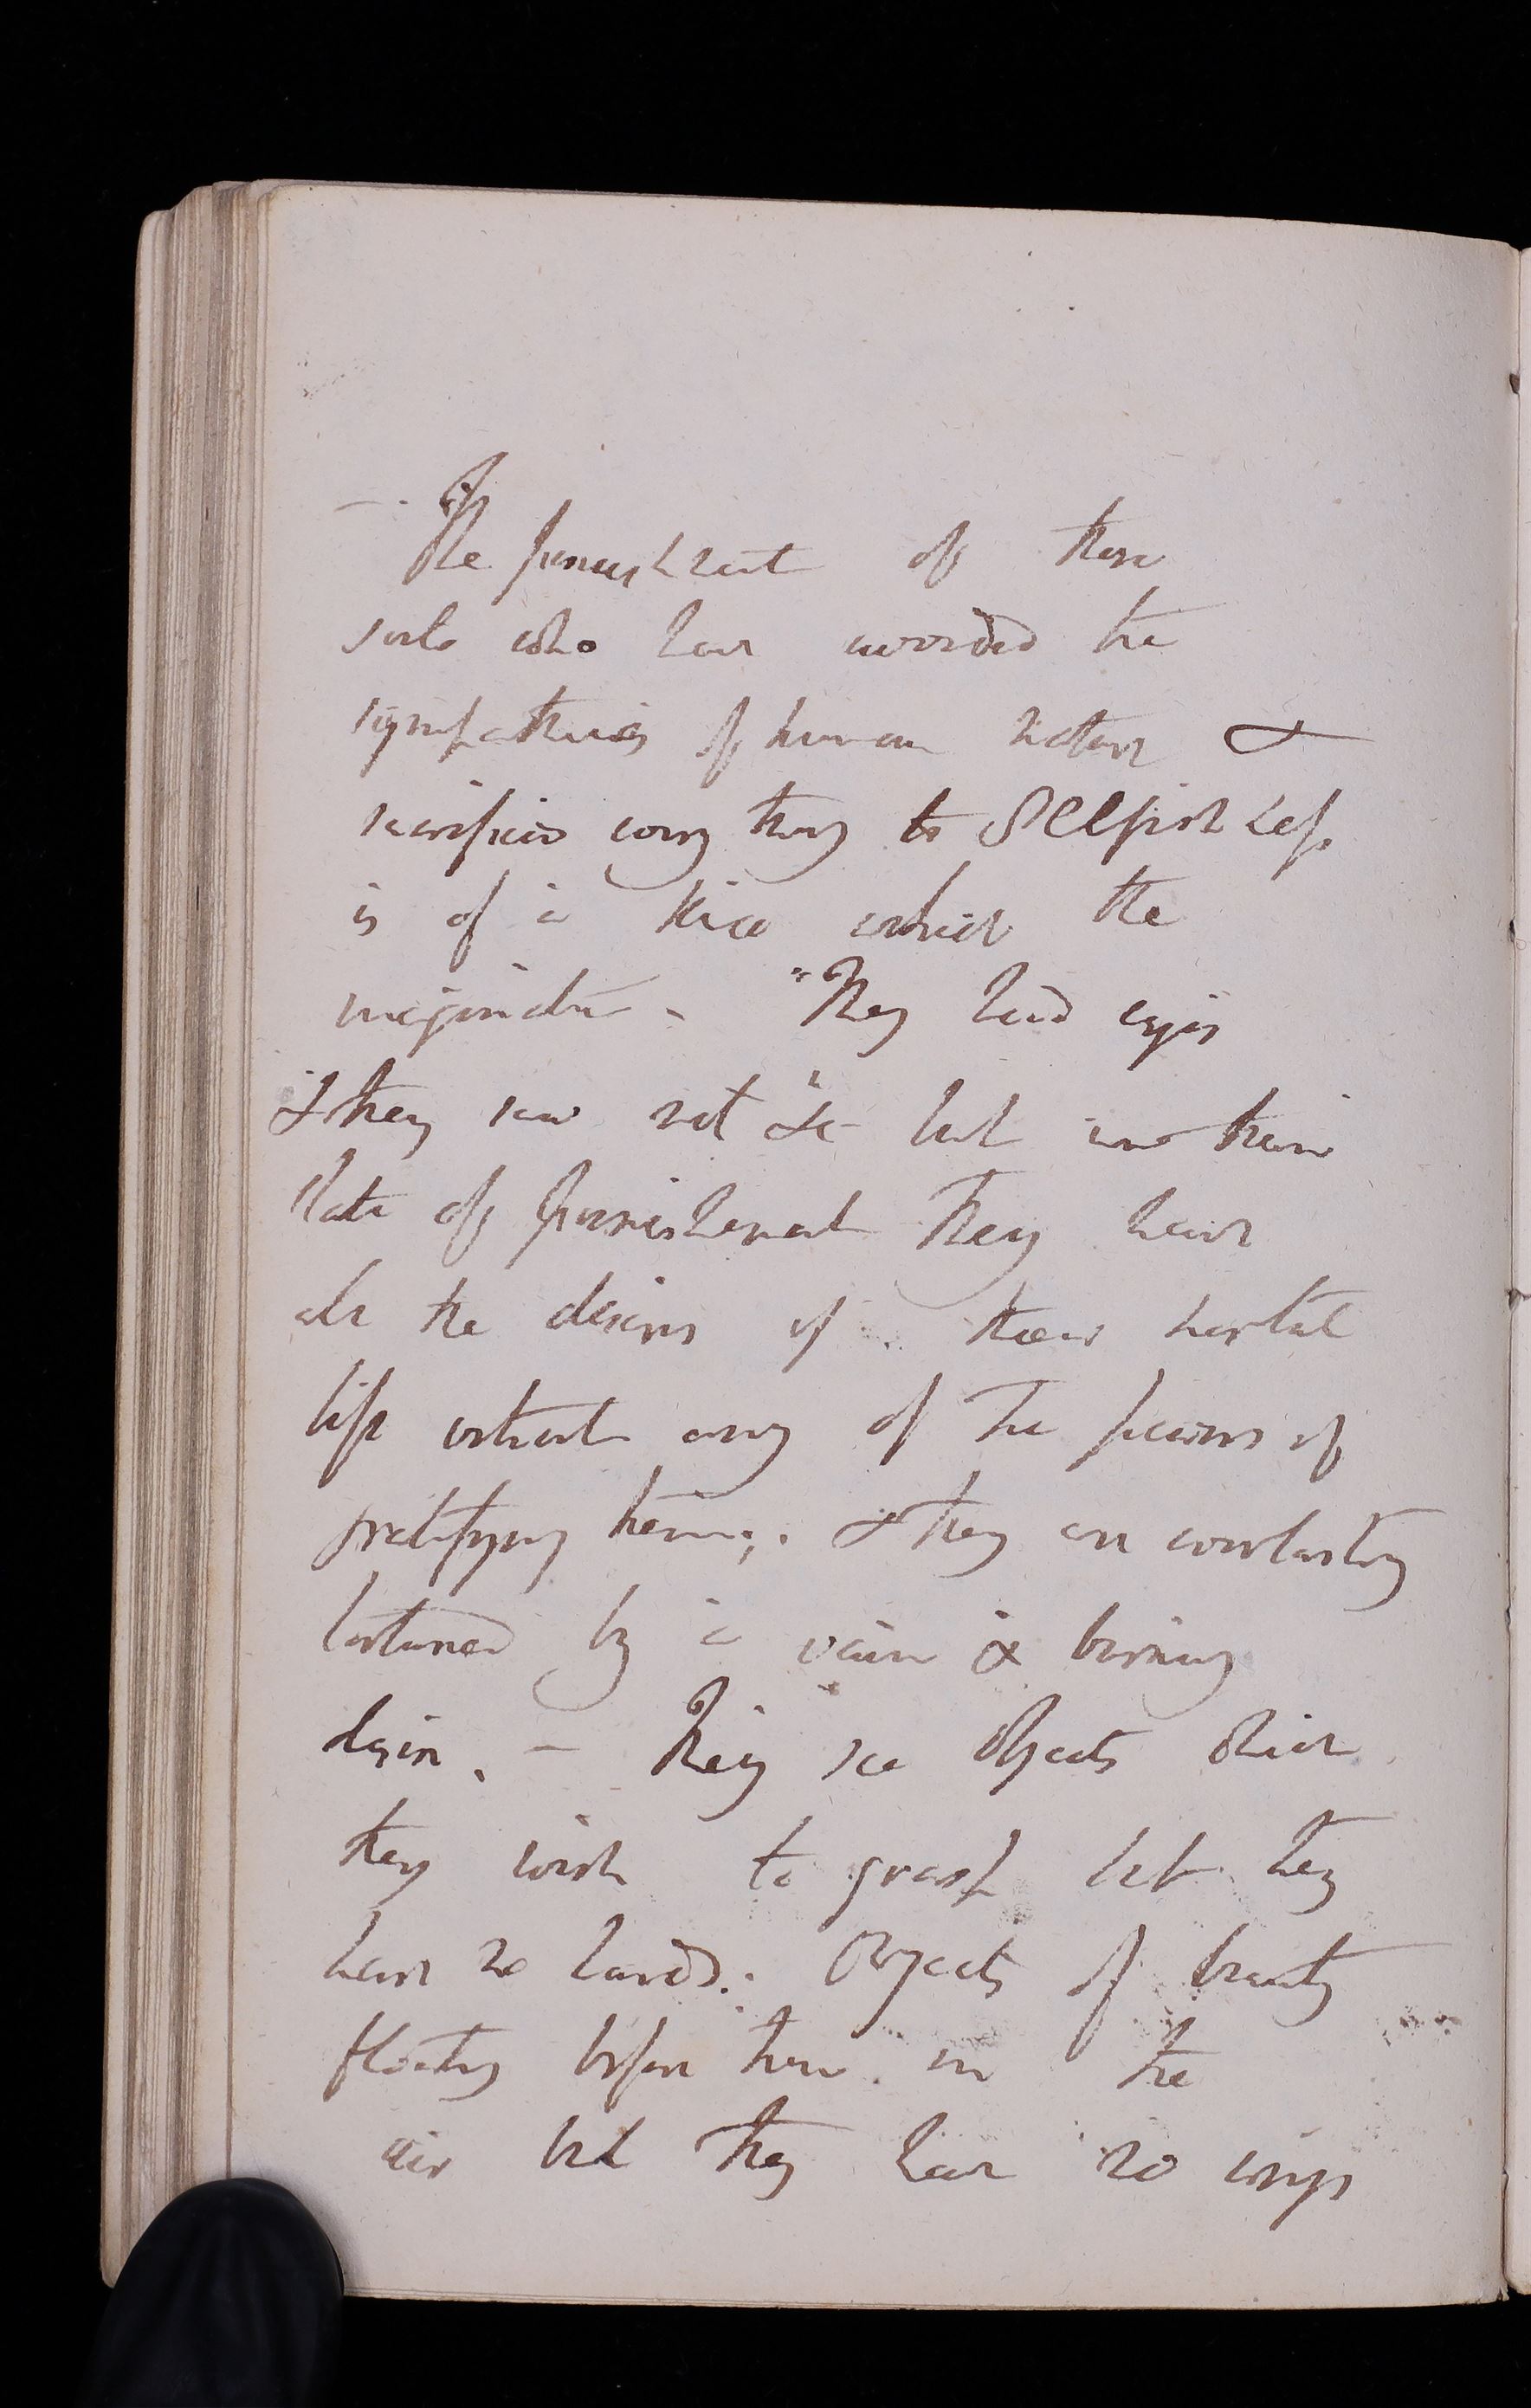 — . The punishment of those
souls who have avoided the
sympathies of human nature &
sacrificed every thing to Selfishness
is of a kind which the
imagination . "They had eyes
& they saw not" &c but in their
state of punishment They have
all the desires of their mortal
life without any of the powers of
gratifying them; . & they are everlastingly
tortured by a vain & burning
desire. — They see objects which
they wish to grasp but they
have no hands. Objects of beauty
floating before them in the
air but they have no wings